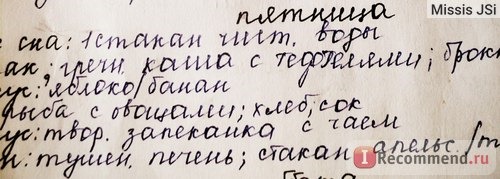 Missis JSi
пятница
сна: 1 стакан чист. воды
ак: гречн. каша с тефтелями; брокк
ус: яблоко/банан
рыба с овощами; хлеб; сок
ус: твор. запеканка с чаем
н: тушен. печень; стакан апельс./т
IRecommend.ru